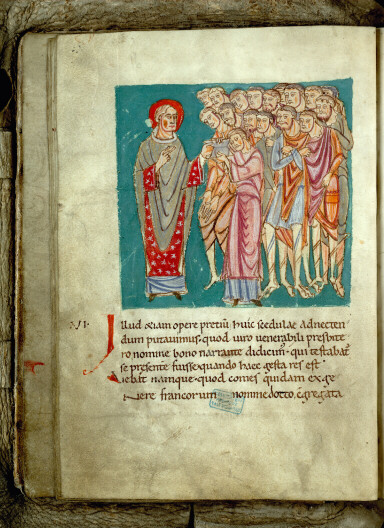 ·XI·
Illud &iam opere pretiũ huic scedulae adnecten
dum putauimus· quod uiro uenerabili presbite
ro nomine bono narrante didicim᷒· qui testabat᷑
se presente fuisse· quando haec gesta res est·
Aiebat namque· quod comes quidam ex ge
nere francorum nomine dotto, cĝregata